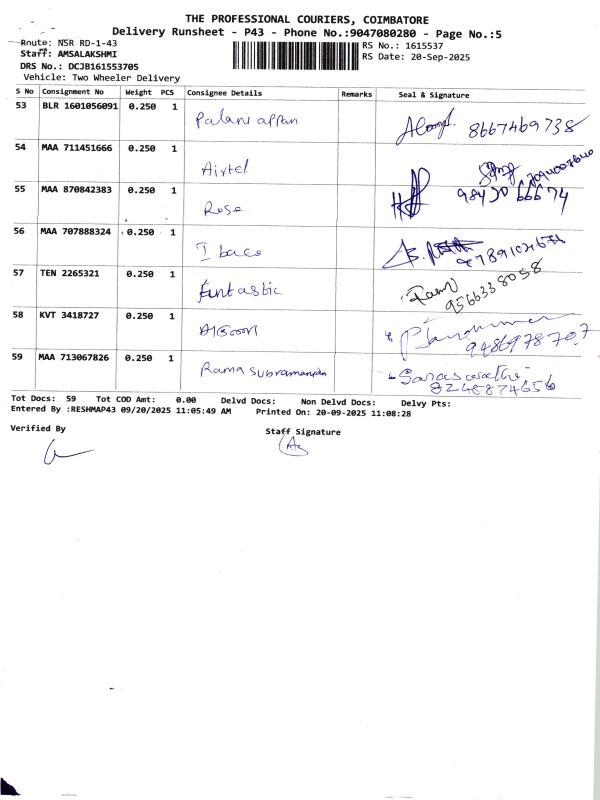 THE PROFESSIONAL COURIERS, COIMBATORE
Delivery Runsheet - P43 - Phone No.:9047080280 - Page No.:5
Route: NSR RD-1-43
RS No.: 1615537
Staff: AMSALAKSHMI
RS Date: 20-Sep-2025
DRS No.: DCJB161553705
Vehicle: Two Wheeler Delivery
S No Consignment No Weight PCS Consignee Details Remarks Seal & Signature
53 BLR 1601056091 0.250 1 Palani appan 8667469738
54 MAA 711451666 0.250 1 Airtel
55 MAA 870842383 0.250 1 Rose 98430 66674
56 MAA 707888324 0.250 1 I baco
57 TEN 2265321 0.250 1 Funtastic 9566338058
58 KVT 3418727 0.250 1 9486978707
59 MAA 713067826 0.250 1 Rama Subramanyan Saraswathi 8248874656
Tot Docs: 59 Tot COD Amt: 0.00 Delvd Docs: Non Delvd Docs: Delvy Pts:
Entered By :RESHMAP43 09/20/2025 11:05:49 AM Printed On: 20-09-2025 11:08:28
Verified By
Staff Signature